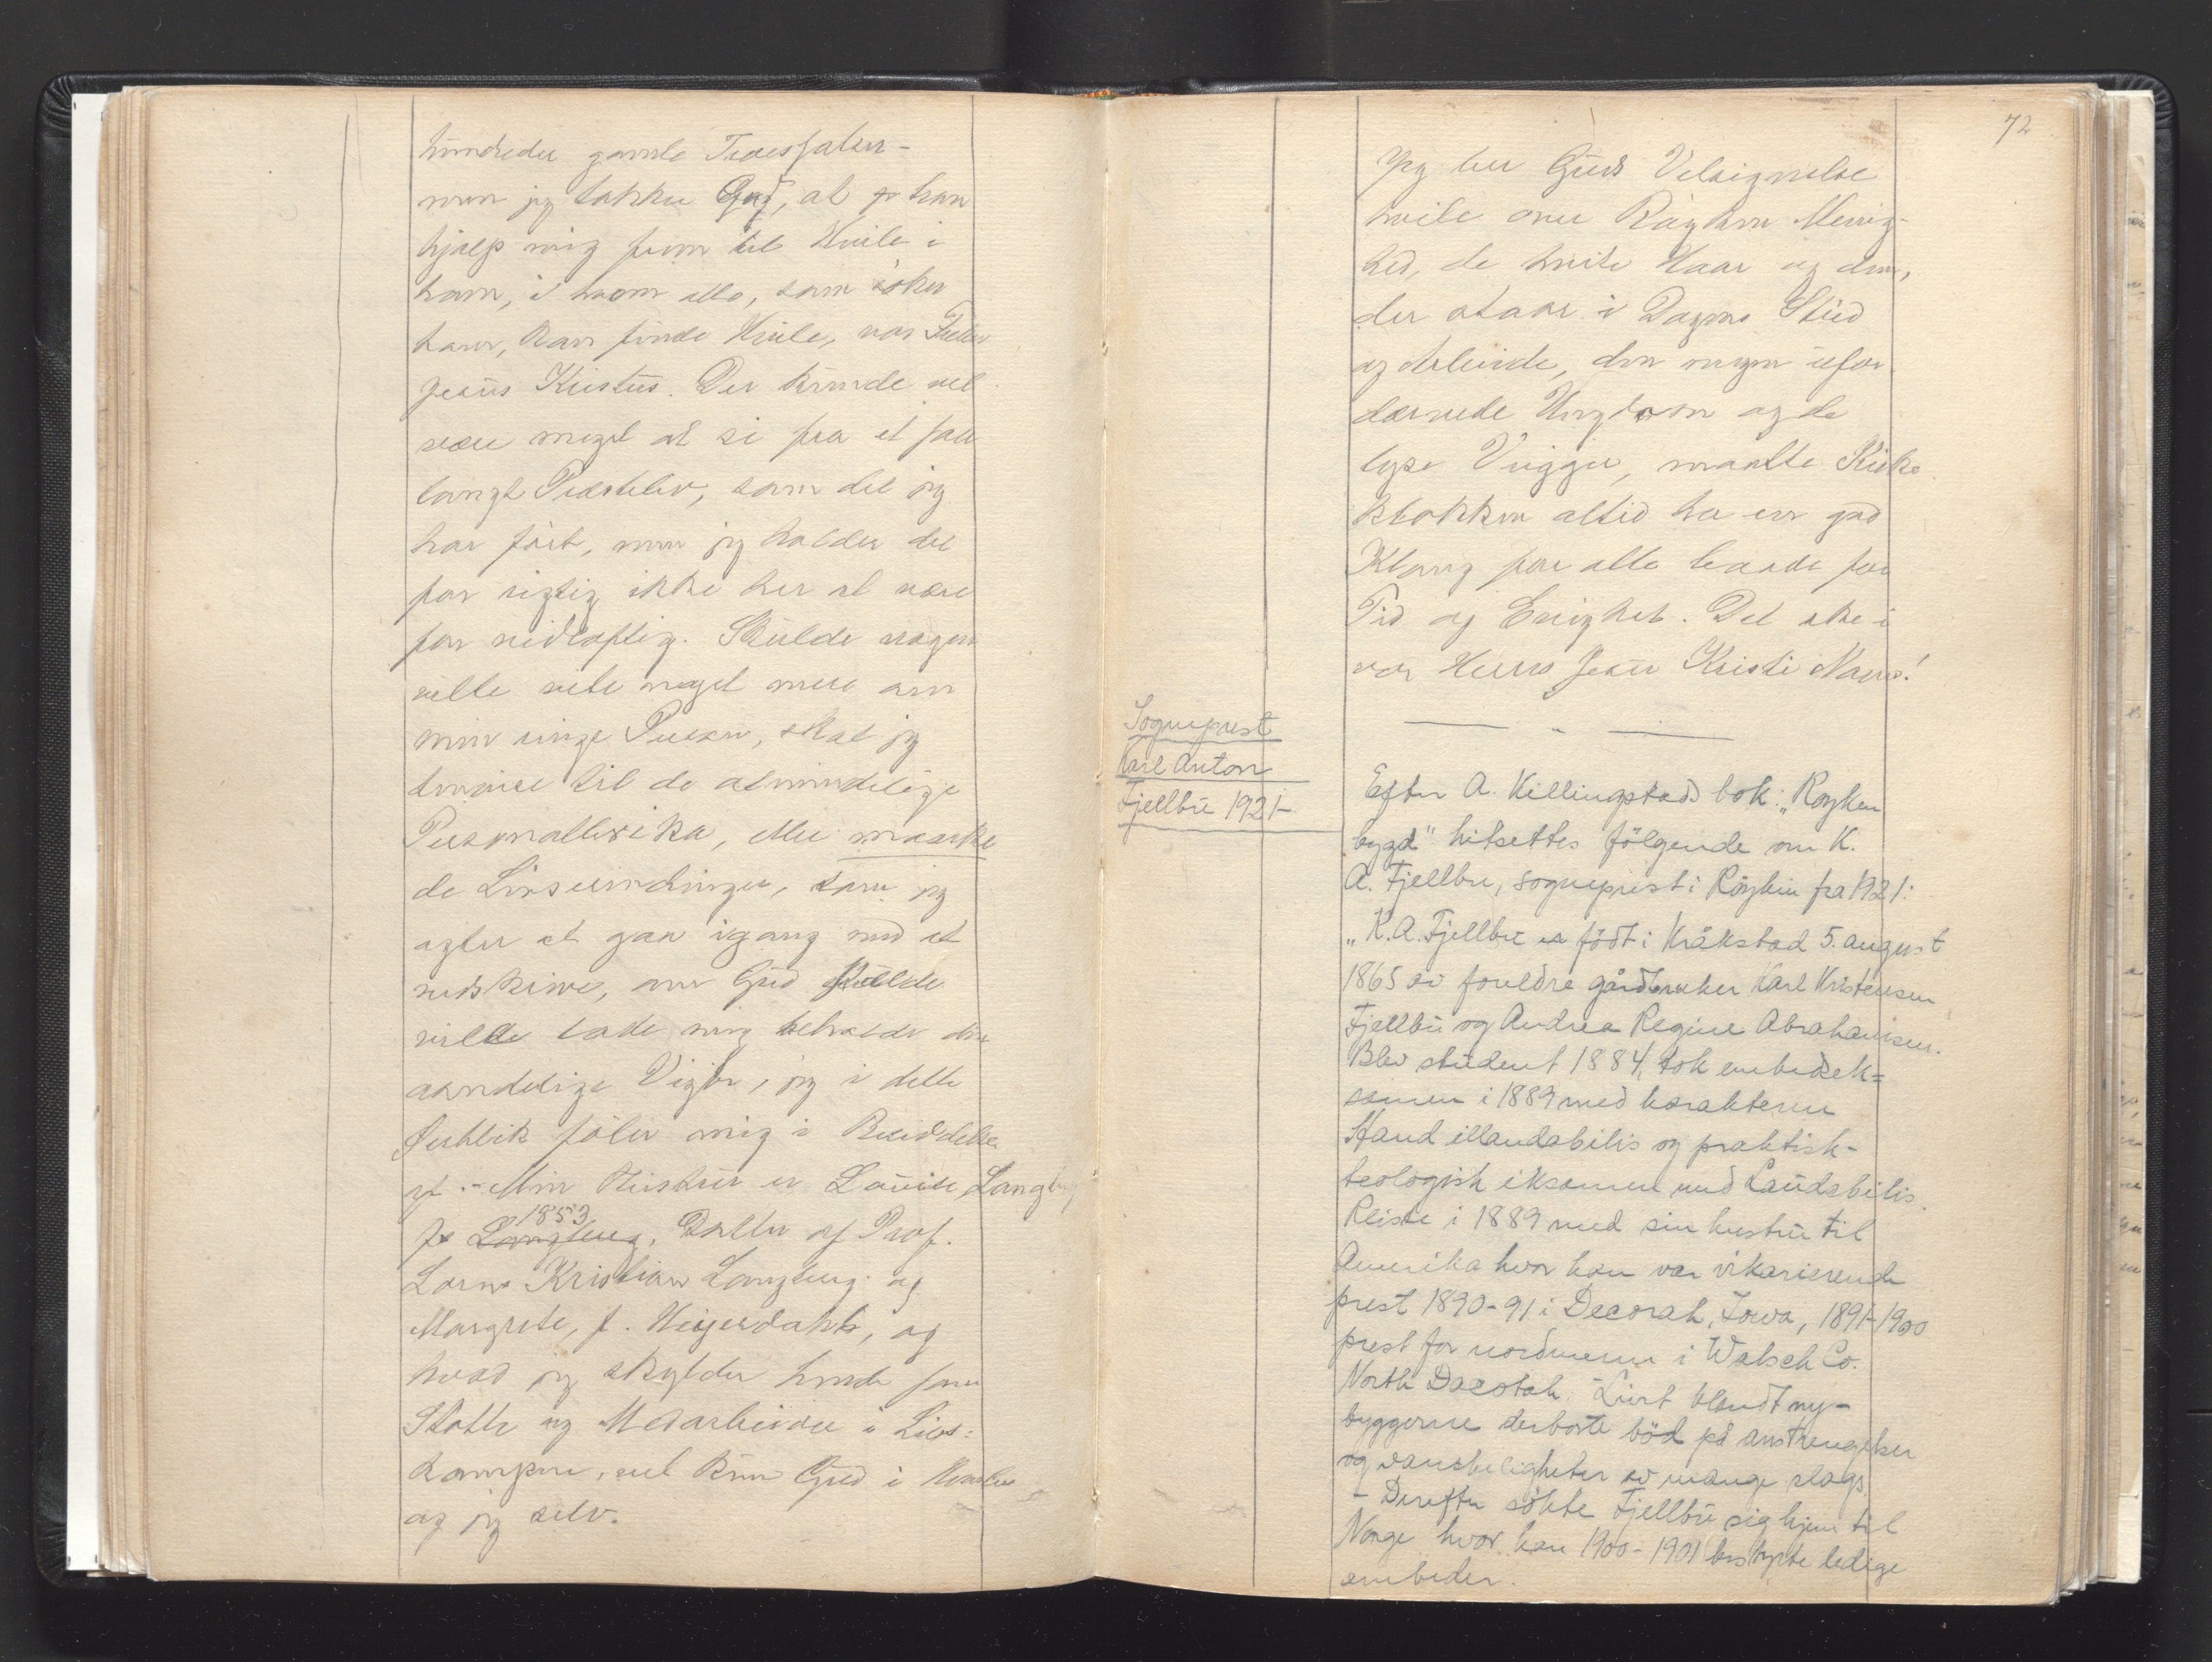 hundreder gamle Troesfaderen-
men jeg takker Gud, at han
hjalp mig frem til Hvile i
ham, i hvem alle, som söker
ham, kan finde Hvile, vor Frelser
Jesus Kristus. Der kunde vel
være meget at si fra et saa
langt Presteliv, som det jeg
har fört, men jeg holder det
for rigtig ikke her at være
for vidloftig. Skulde nogen
ville vite noget mere om
min ringe Person, skal jeg
henvise til de almindelige
Personalleksika, eller maaske
de Livserindringer, som jeg
agter at gaa igang med at
nedskrive, om Gud skulde
ville lade mig beholde den
aandelige Vigör, jeg i dette
Öieblik föler mig i Besiddelse
af. - Min Hustru er Louise Langberg
f. 1853, Datter af Prof.
Lorns Kristian Langberg og
Margrete, f. Heijerdahl, og
hvad jeg skylder hende som
Stötte og Medarbeider i Livs-
kampen, vet kun Gud i Himlen
og jeg selv.
72
Jeg ber Guds Velsignelse
hvile over Röyken Menig-
hed, de hvite Haar og dem,
der staar i Dagens Strid
og Arbeide, den unge ufor-
dærvede Ungdom og de
lyse Vugger, maatte Kirke
klokken altid ha en god
Klang for alle baade for
Tid og Evighet. Det ske i
vor Herres Jesu Kristi Navn!
Sogneprest
Karl Anton
Fjellbu 1921-
Efter A. Killingstads bok: "Röyken
bygd" hitsettes fölgende om K.
A. Fjellbu, sogneprest i Röyken fra 1921:
"K. A. Fjellbu er födt i Kråkstad 5. august
1865 av foreldre gårdbruker Karl Kristensen
Fjellbu og Andrea Regine Abrahamsen.
Blev student 1884, tok embedsek=
samen i 1889 med karakteren
Haud illaudabilis og praktisk-
teologisk eksamen med Laudabilis.
Reiste i 1889 med sin hustru til
Amerika hvor han var vikarierende
prest 1890-91 i Decorah, Iowa, 1891-1900
prest for nordmenn i Walsch Co.
North Dacotah. Livet blandt ny-
byggerne derborte böd på anstrengelser
og vanskeligheter av mange slags
- Derefter sökte Fjellbu sig hjem til
Norge hvor han 1900-1901 bestyrte ledige
embeder.